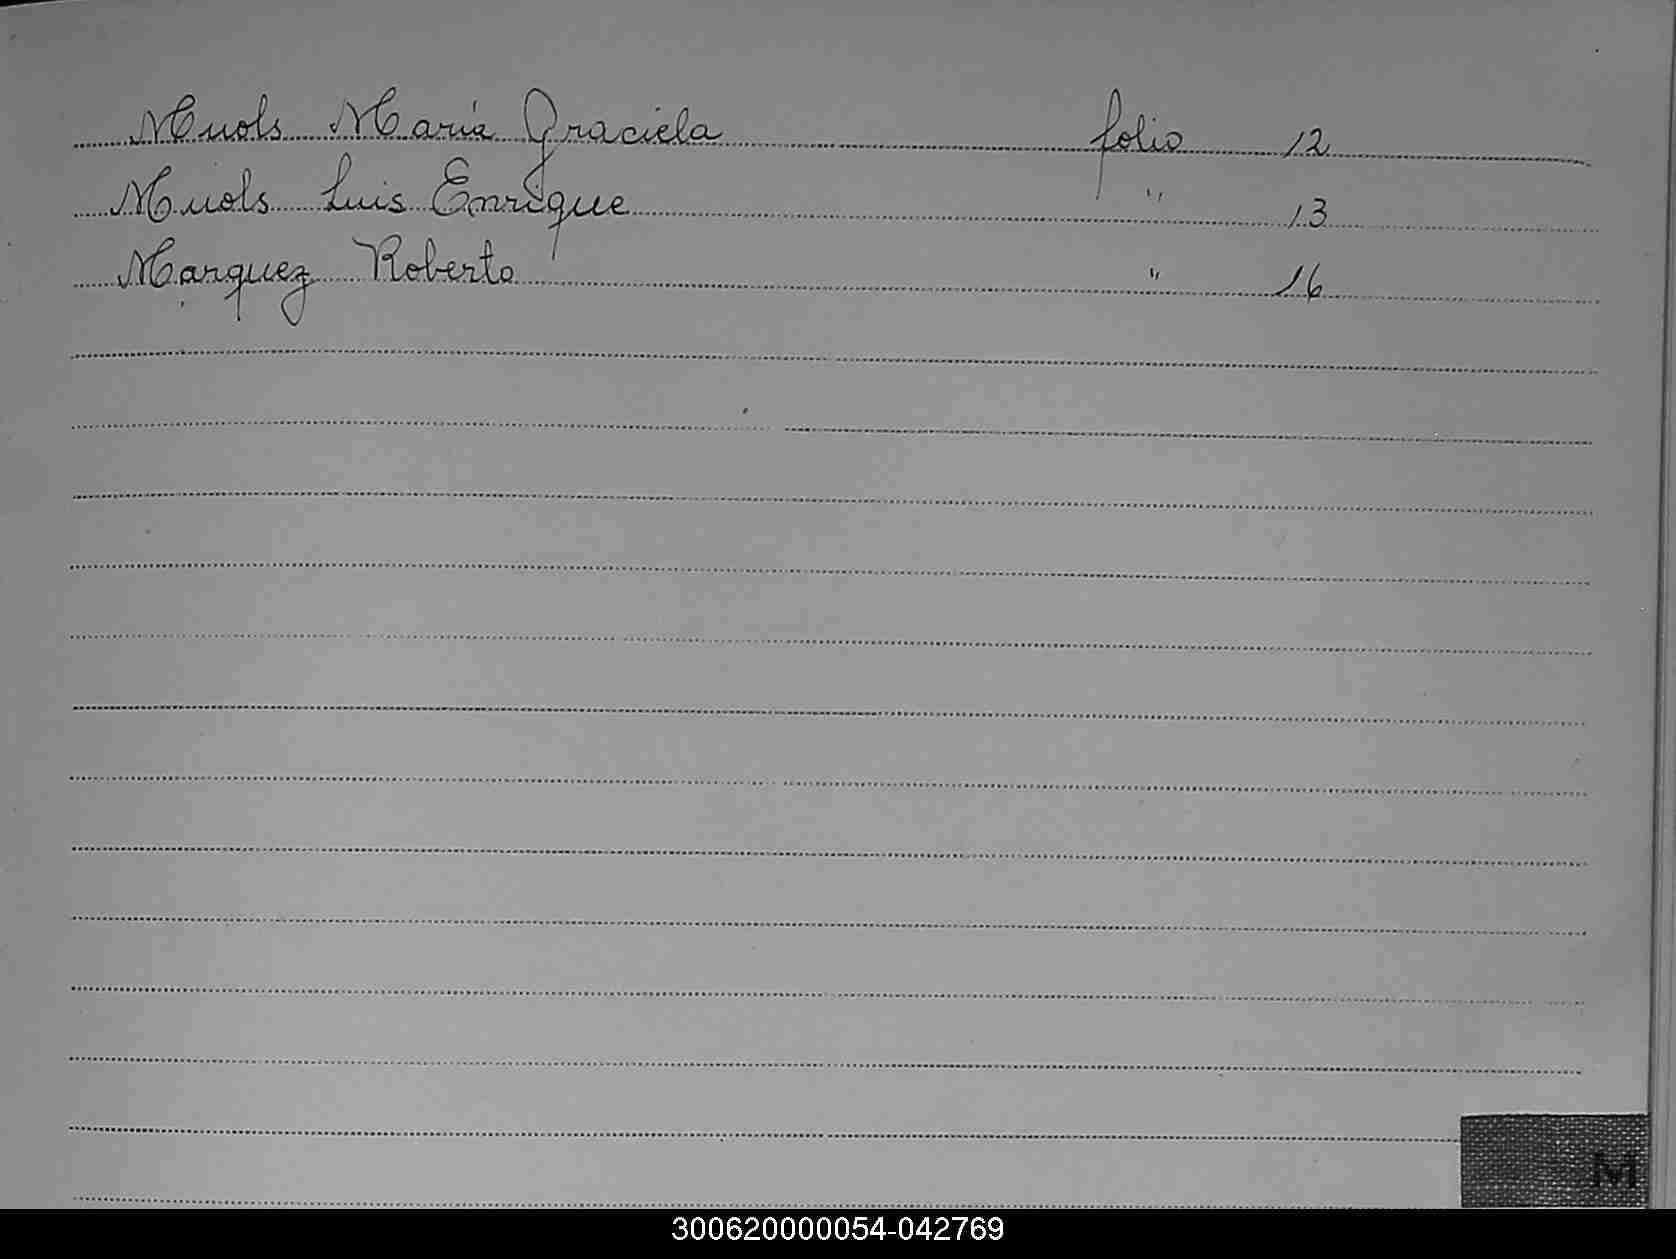 Muols María Graciela folio 12
Muols Luis Enrique " 13
Marquez Roberto " 16
M
300620000054-042769